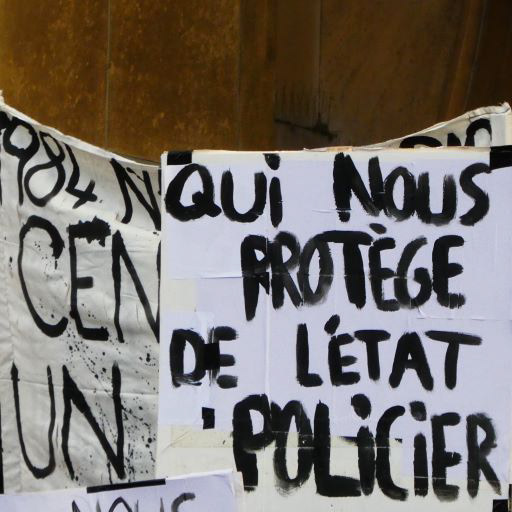 1984 N
CEN
UN
QUi NOUS
PROTÈGE
DE L'ÉTAT
POLiCiER
NOUS